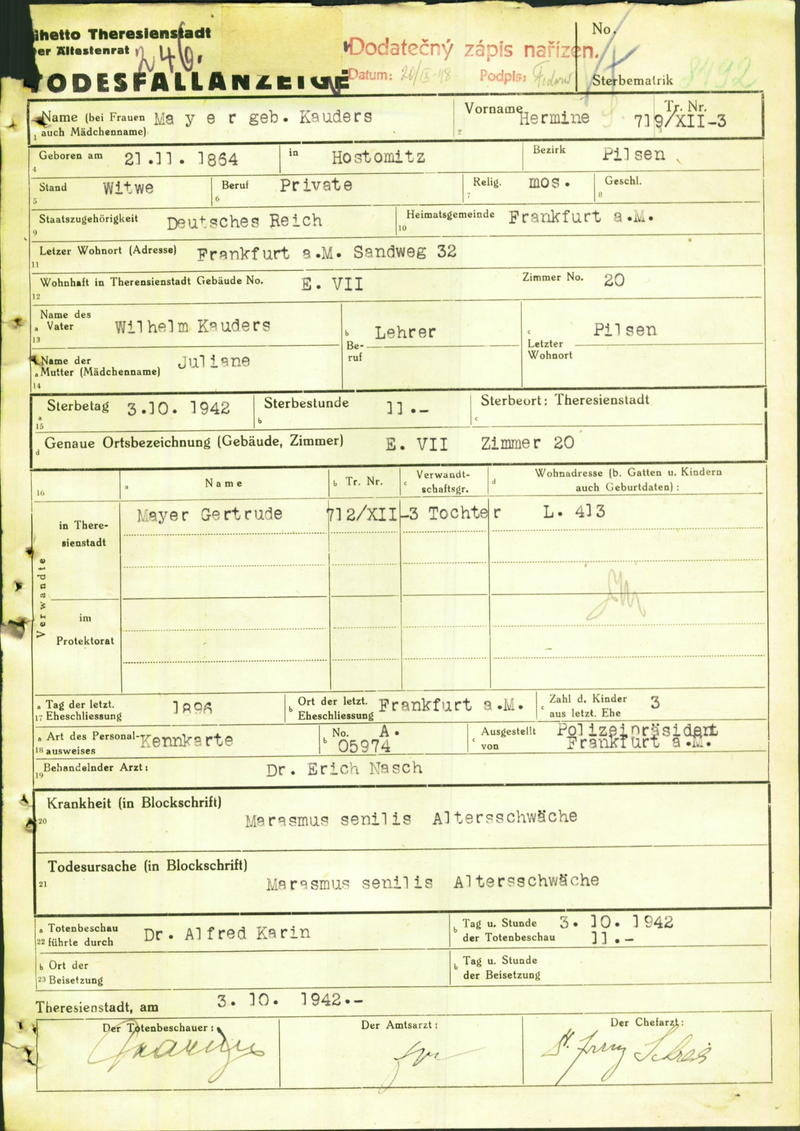 Ghetto Theresienstadt
Der Ältestenrat
TODESFALLANZEIGE
Dodatečný zápis nařízen.
Datum: Podpis:
No.
Sterbematrik 8492
Name (bei Frauen auch Mädchenname) Mayer geb. Kauders
1
Vorname Hermine
2
Tr. Nr. 719/XII-3
Geboren am 21.11. 1864 in Hostomitz Bezirk Pilsen
4
Stand Witwe Beruf Private Relig. mos. Geschl.
5 6 7 8
Staatszugehörigkeit Deutsches Reich Heimatsgemeinde Frankfurt a.M.
9 10
Letzer Wohnort (Adresse) Frankfurt a.M. Sandweg 32
11
Wohnhaft in Theresienstadt Gebäude No. E. VII Zimmer No. 20
12
Name des
a Vater Wilhelm Kauders b Be-ruf Lehrer c Letzter Wohnort Pilsen
13
Name der
a Mutter (Mädchenname) Juliane
14
a Sterbetag 3.10. 1942 b Sterbestunde 11.- c Sterbeort: Theresienstadt
15
d Genaue Ortsbezeichnung (Gebäude, Zimmer) E. VII Zimmer 20
16 a Name b Tr. Nr. c Verwandt-schaftsgr. d Wohnadresse (b. Gatten u. Kindern auch Geburtdaten) :
Verwandte
in There-sienstadt
Mayer Gertrude 712/XII-3 Tochter L. 413
im
Protektorat
a Tag der letzt.
17 Eheschliessung 1896 b Ort der letzt. Eheschliessung Frankfurt a.M. c Zahl d. Kinder aus letzt. Ehe 3
a Art des Personal-
18 ausweises Kennkarte b No. A. 05974 c Ausgestellt von Polizeipräsident Frankfurt a.M.
Behandelnder Arzt: Dr. Erich Nasch
19
Krankheit (in Blockschrift)
20 Marasmus senilis Altersschwäche
Todesursache (in Blockschrift)
21 Marasmus senilis Altersschwäche
a Totenbeschau
22 führte durch Dr. Alfred Karin b Tag u. Stunde der Totenbeschau 3. 10. 1942 11.-
b Ort der
23 Beisetzung b Tag u. Stunde der Beisetzung
Theresienstadt, am 3. 10. 1942.-
Der Totenbeschauer: Der Amtsarzt: Der Chefarzt: